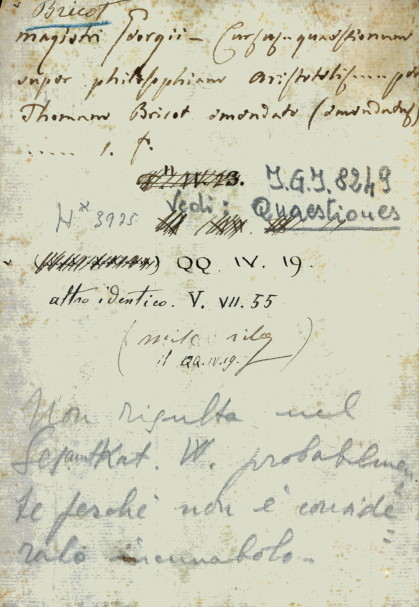 Bricot
magistri Georgii – Cursus quaestionum
super philosophiam Aristotelis.... per
Thomam Bricot emendato (emendatus)
..... 1. f.
I.G.I. 8249
Nx 3925 Vedi: Quaestiones
QQ. IV. 19.
altro identico. V. VII. 55
(
il QQ.IV.19. )
Non risulta nel
Gesamtkat. W. probabilmen
te perchè non è conside
rato incunabolo.